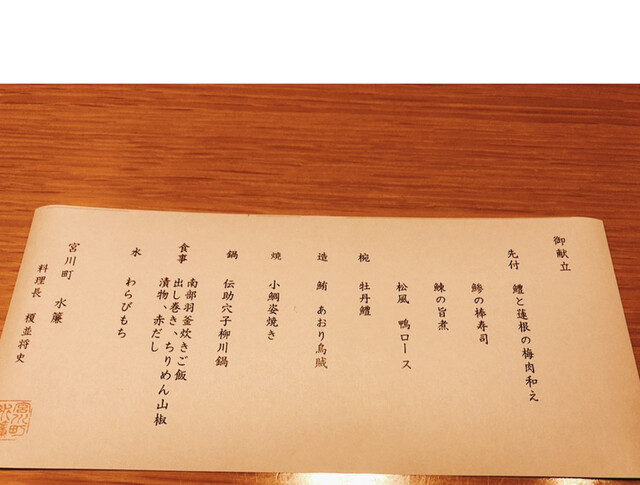 御献立
先付 鱧と蓮根の梅肉和え
鯵の棒寿司
鰊の旨煮
松風 鴨ロース
椀 牡丹鱧
造 鮪 あおり烏賊
焼 小鯛姿焼き
鍋 伝助穴子柳川鍋
食事 南部羽釜炊きご飯
出し巻き、ちりめん山椒
漬物、赤だし
水 わらびもち
宮川町 水簾
料理長 榎並将史
宮川町
水簾